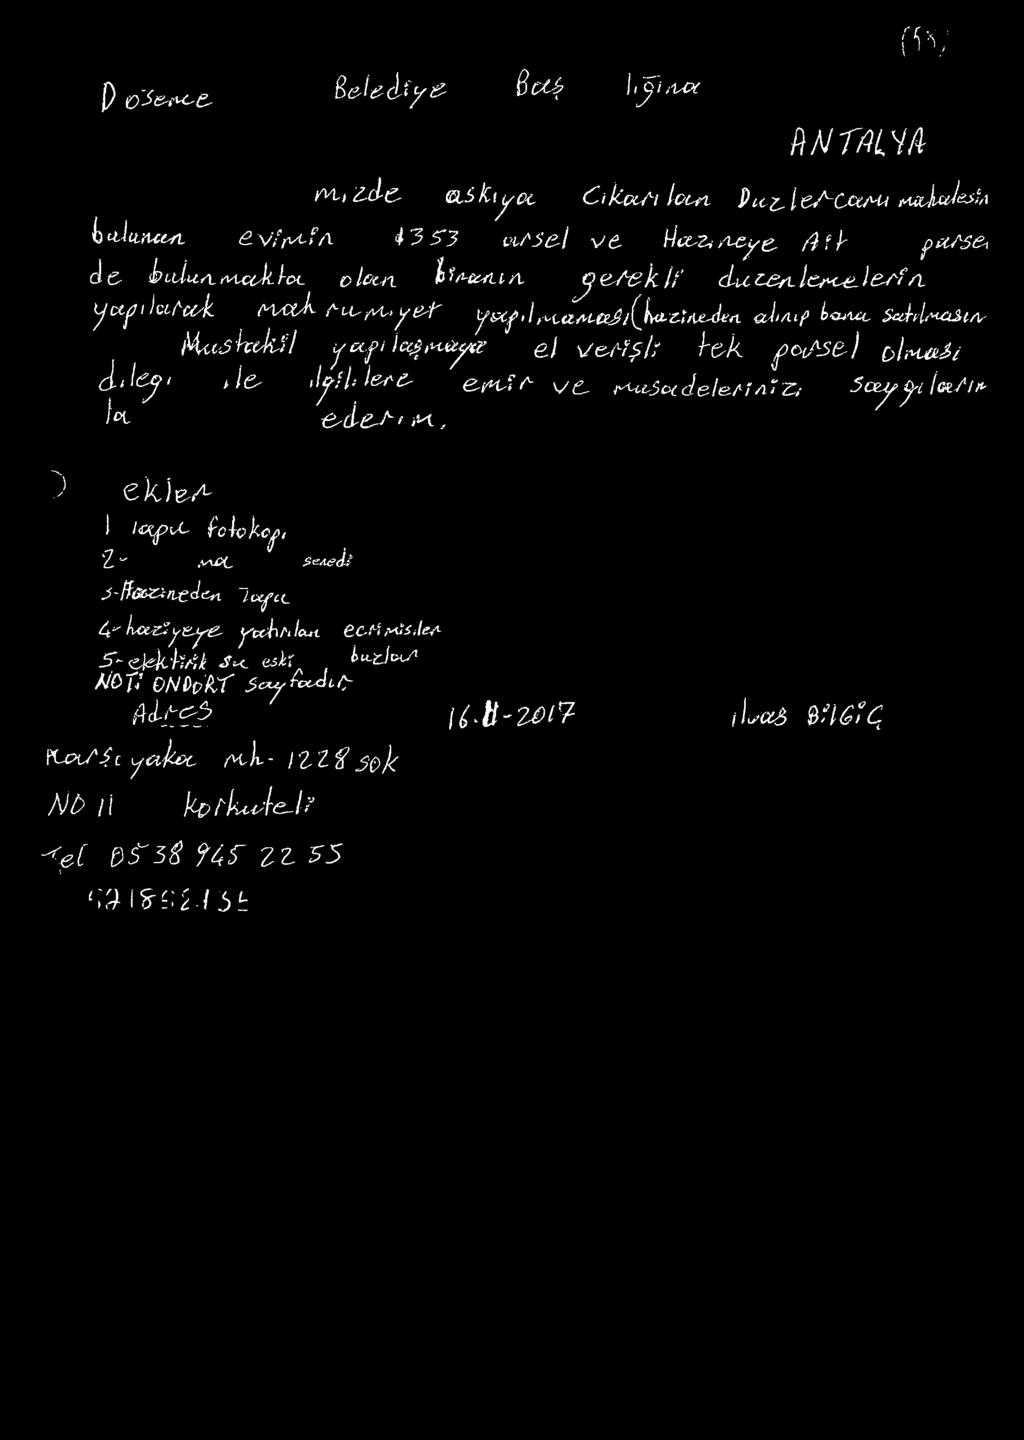 Belediye Baş lığına
ANTALYA
mizde askıya Cikarılan Duzlercamı mahalesin
bulunan evimin 1353 arsel ve Hazineye Ait parsel
de bulunmakta olan binanın gerekli duzenlemelerin
yapılarak mahrumiyet yapılmaması(hazineden alınıp bana satılmasını
Mustakil yapılaşmaya el verişli tek parsel olması
dilegi ile ilgililere emir ve musadelerinizi saygıların
la ederim.
ekler
1 tapu fotokopi
2- na senedi
3-Hazineden Tapu
4-haziyeye yatırılan ecrimisiler
5- elektirik su eski
NOT: ONDORT sayfadır
Adres 16.11-2017 ilyas BİLGİÇ
Karşıyaka mh- 1228 sok
NO 11 Korkuteli
Tel 0538 945 22 55